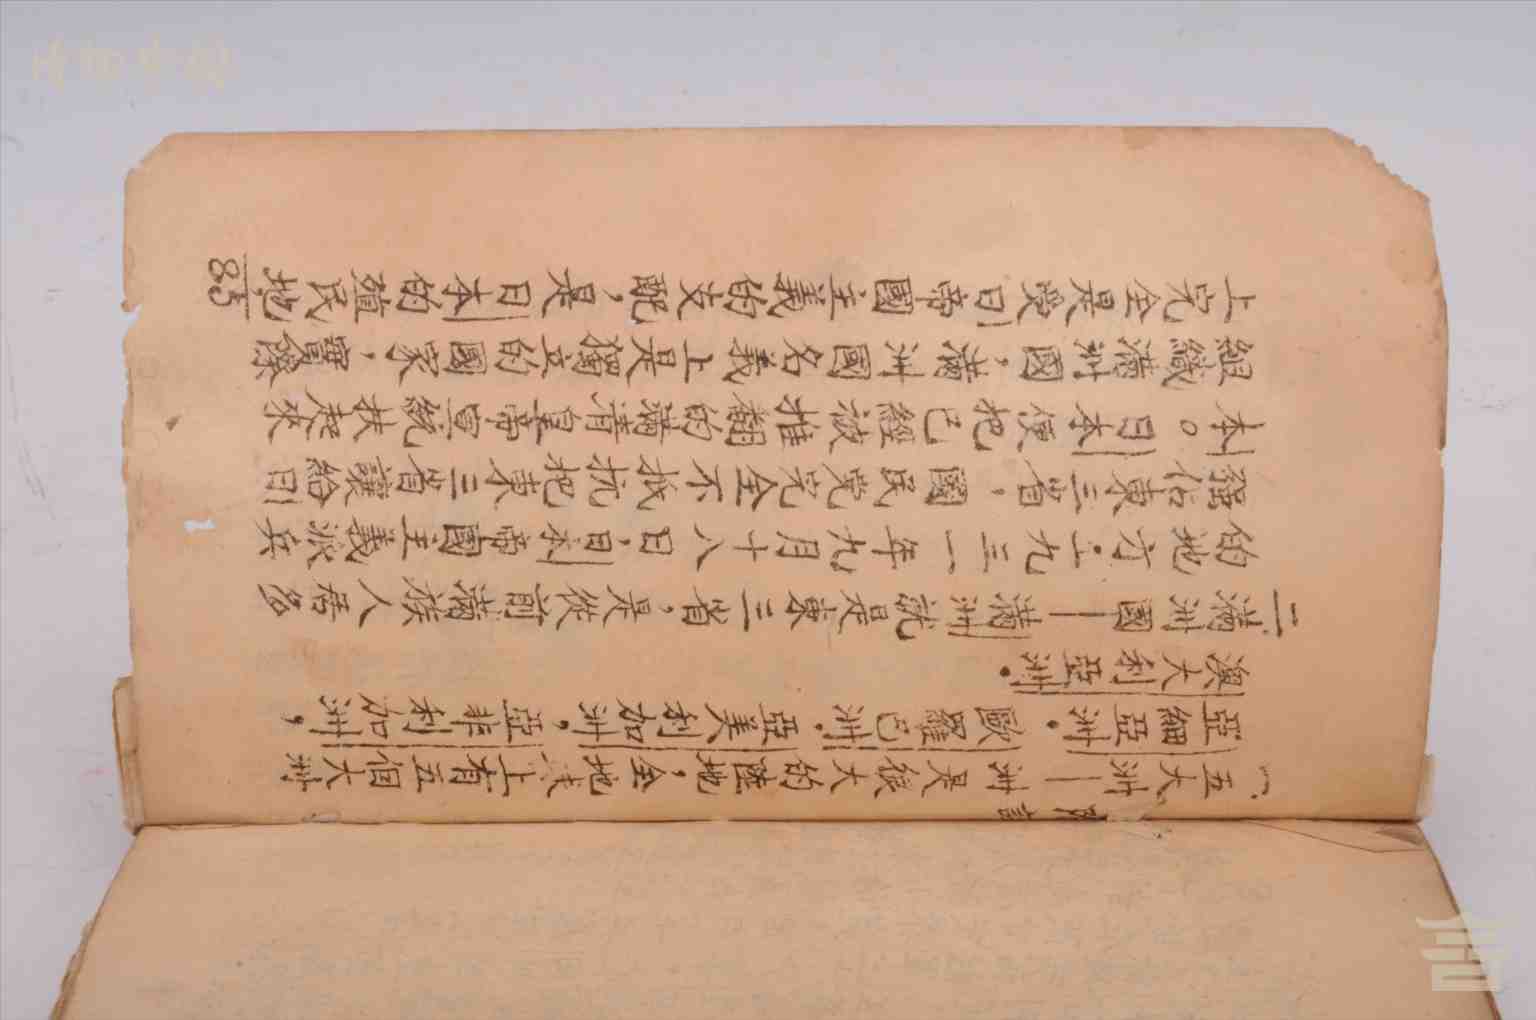 附註
一.五大洲——洲是很大的陸地,全地球上有五個大洲
亞細亞洲.歐羅巴洲.亞美利加洲,亞非利加洲,
澳大利亞洲.
二.滿洲國——滿洲就是東三省,是從前滿族人居多
的地方.一九三一年九月十八日,日本帝國主義派兵
强佔東三省,國民党完全不抵抗把東三省讓給日
本。日本便把已經被推翻的滿清皇帝宣統扶起來
組織滿洲國,滿洲國名義上是獨立的國家,實際
上完全是受日帝國主義的支配,是日本的殖民地
83